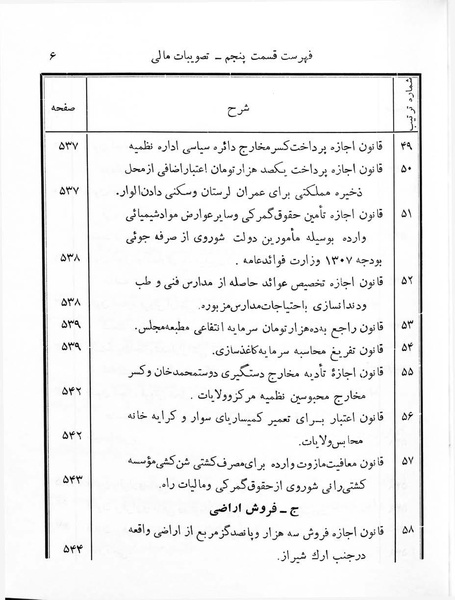 فهرست قسمت پنجم ـ تصویبات مالی ۶
شماره ترتیب شرح صفحه
۴۹ قانون اجازه پرداخت کسر مخارج دائره سیاسی اداره نظمیه ۵۳۷
۵۰ قانون اجازه پرداخت یکصد هزار تومان اعتبار اضافی از محل
ذخیره مملکتی برای عمران لرستان وسکنی دادن الوار. ۵۳۷
۵۱ قانون اجازه تأمین حقوق گمرکی وسایر عوارض مواد شیمیائی
وارده بوسیله مأمورین دولت شوروی از صرفه جوئی
بودجه ۱۳۰۷ وزارت فوائدعامه. ۵۳۸
۵۲ قانون اجازه تخصیص عوائد حاصله از مدارس فنی و طب
ودندانسازی باحتیاجات مدارس مزبوره. ۵۳۸
۵۳ قانون راجع به ده هزار تومان سرمایه انتفاعی مطبعه مجلس. ۵۳۹
۵۴ قانون تفریغ محاسبه سرمایه کاغذسازی. ۵۳۹
۵۵ قانون اجازۀ تأدیه مخارج دستگیری دوستمحمدخان وکسر
مخارج محبوسین نظمیه مرکز و ولایات. ۵۴۲
۵۶ قانون اعتبار برای تعمیر کمیساریای سوار و کرایه خانه
محابس ولایات. ۵۴۲
۵۷ قانون معافیت مازوت وارده برای مصرف کشتی شن کشی مؤسسه
کشتی رانی شوروی از حقوق گمرکی ومالیات راه. ۵۴۳
ج ـ فروش اراضی
۵۸ قانون اجازه فروش سه هزار و پانصد گز مربع از اراضی واقعه
در جنب ارك شیراز. ۵۴۴